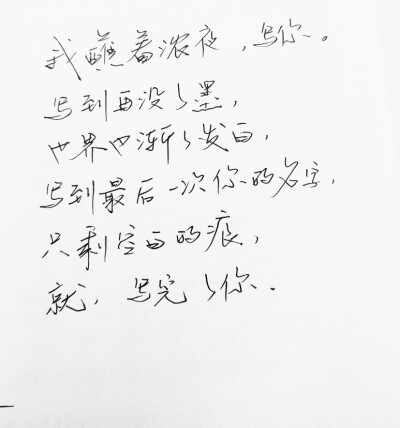 我蘸着浓夜，写你。
写到再没了墨，
世界也渐了发白，
写到最后一次你的名字，
只剩空白的痕，
就，写完了你.